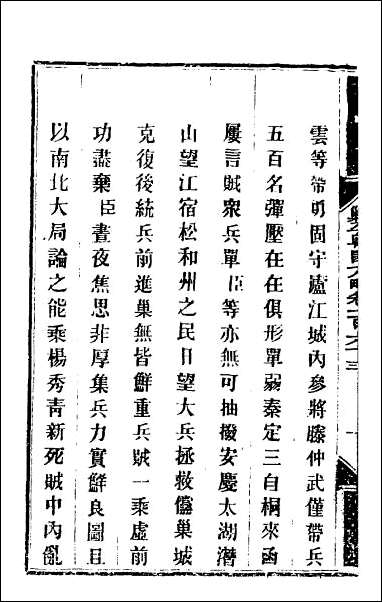 雲等帶勇固守廬江城內參將滕仲武僅帶兵
五百名彈壓在在俱形單弱秦定三自桐來函
屢言賊衆兵單臣等亦無可抽撥安慶太湖潛
山望江宿松和州之民日望大兵拯救儻巢城
克復後統兵前進巢無皆鮮重兵賊一乘虛前
功盡棄臣晝夜焦思非厚集兵力實鮮良圖且
以南北大局論之能乘楊秀靑新死賊中內亂